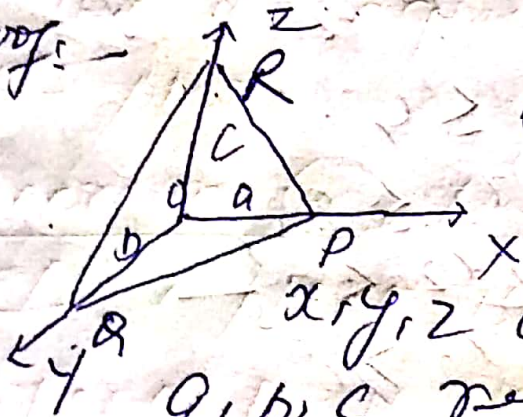 Z
R
C
O a
b
P
X
Q
Y
x, y, z
a, b, c